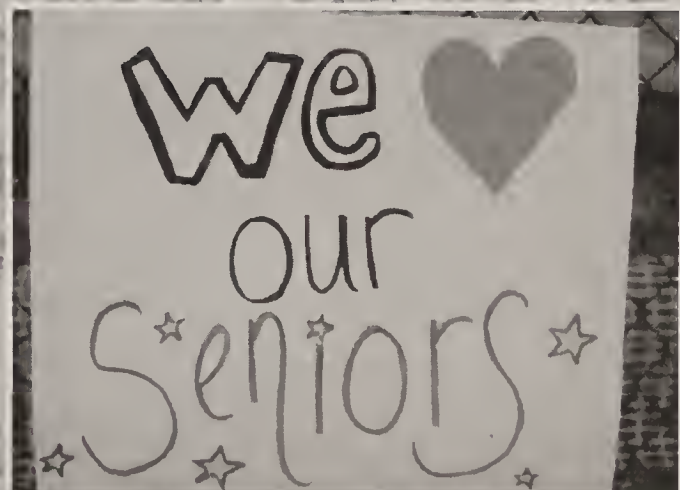 We
our
Seniors